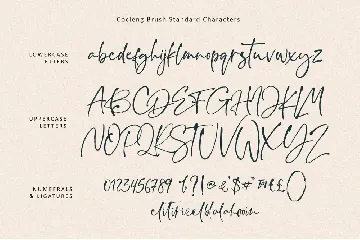 Cocleng Brush Standard Characters
LOWERCASE
LETTERS
abcdefghijklmnopqrstuvwxyz
UPPERCASE
LETTERS
ABCDEFGHIJKLM
NOPQRSTUVWXYZ
NUMERALS
& LIGATURES
0123456789